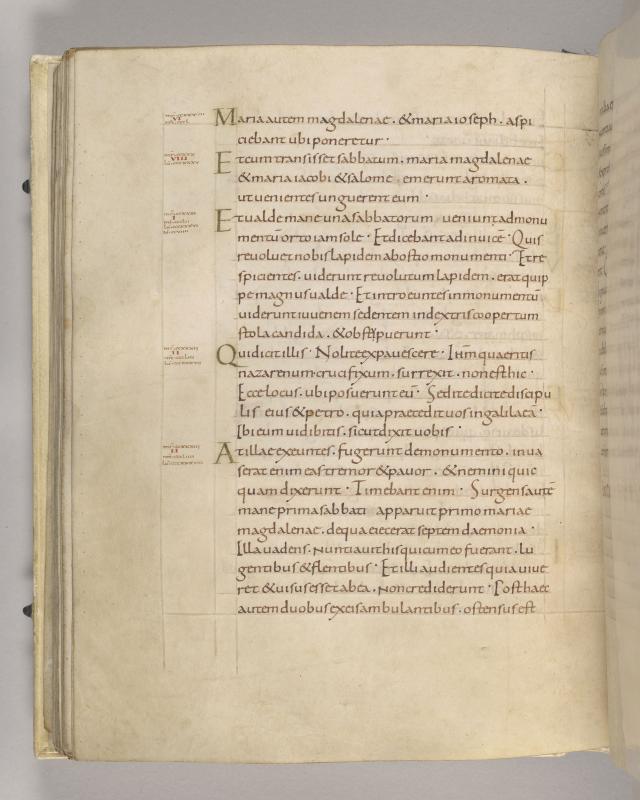 Maria autem magdalenae · & maria ioseph · aspi
ciebant ubi poneretur ·
Et cum transisset sabbatum · maria magdalenae
& maria iacobi & salome · emerunt aromata ·
ut uenientes unguerent eum ·
Et ualde mane una sabbatorum ueniunt ad monu
mentū orto iam sole · Et dicebant ad inuicē · Quis
reuoluet nobis lapidem ab ostio monumenti · Et re
spicientes · uiderunt reuolutum lapidem · erat quip
pe magnus ualde · Et introeuntes in monumentū
uiderunt iuuenem sedentem in dextris coopertum
stola candida · & obstipuerunt ·
Qui dicit illis · Nolite expauescere · Ihm̄ quaeritis
nazarenum crucifixum · surrexit · non est hic ·
Ecce locus · ubi posuerunt eū · Sed ite dicite discipu
lis eius & petro · quia praecedit uos in galilaeā ·
Ibi eum uidibitis · sicut dixit uobis ·
At illae exeuntes · fugerunt de monumento · inua
serat enim eas tremor & pauor · & nemini quic
quam dixerunt · Timebant enim · Surgens autē
mane prima sabbati apparuit primo mariae
magdalenae · de qua eiecerat septem daemonia ·
Illa uadens · nuntiauit his qui cum eo fuerant · lu
gentibus & flentibus · Et illi audientes quia uiue
ret & uisus esset ab ea · non crediderunt · Post haec
autem duobus ex eis ambulantibus · ostensus est